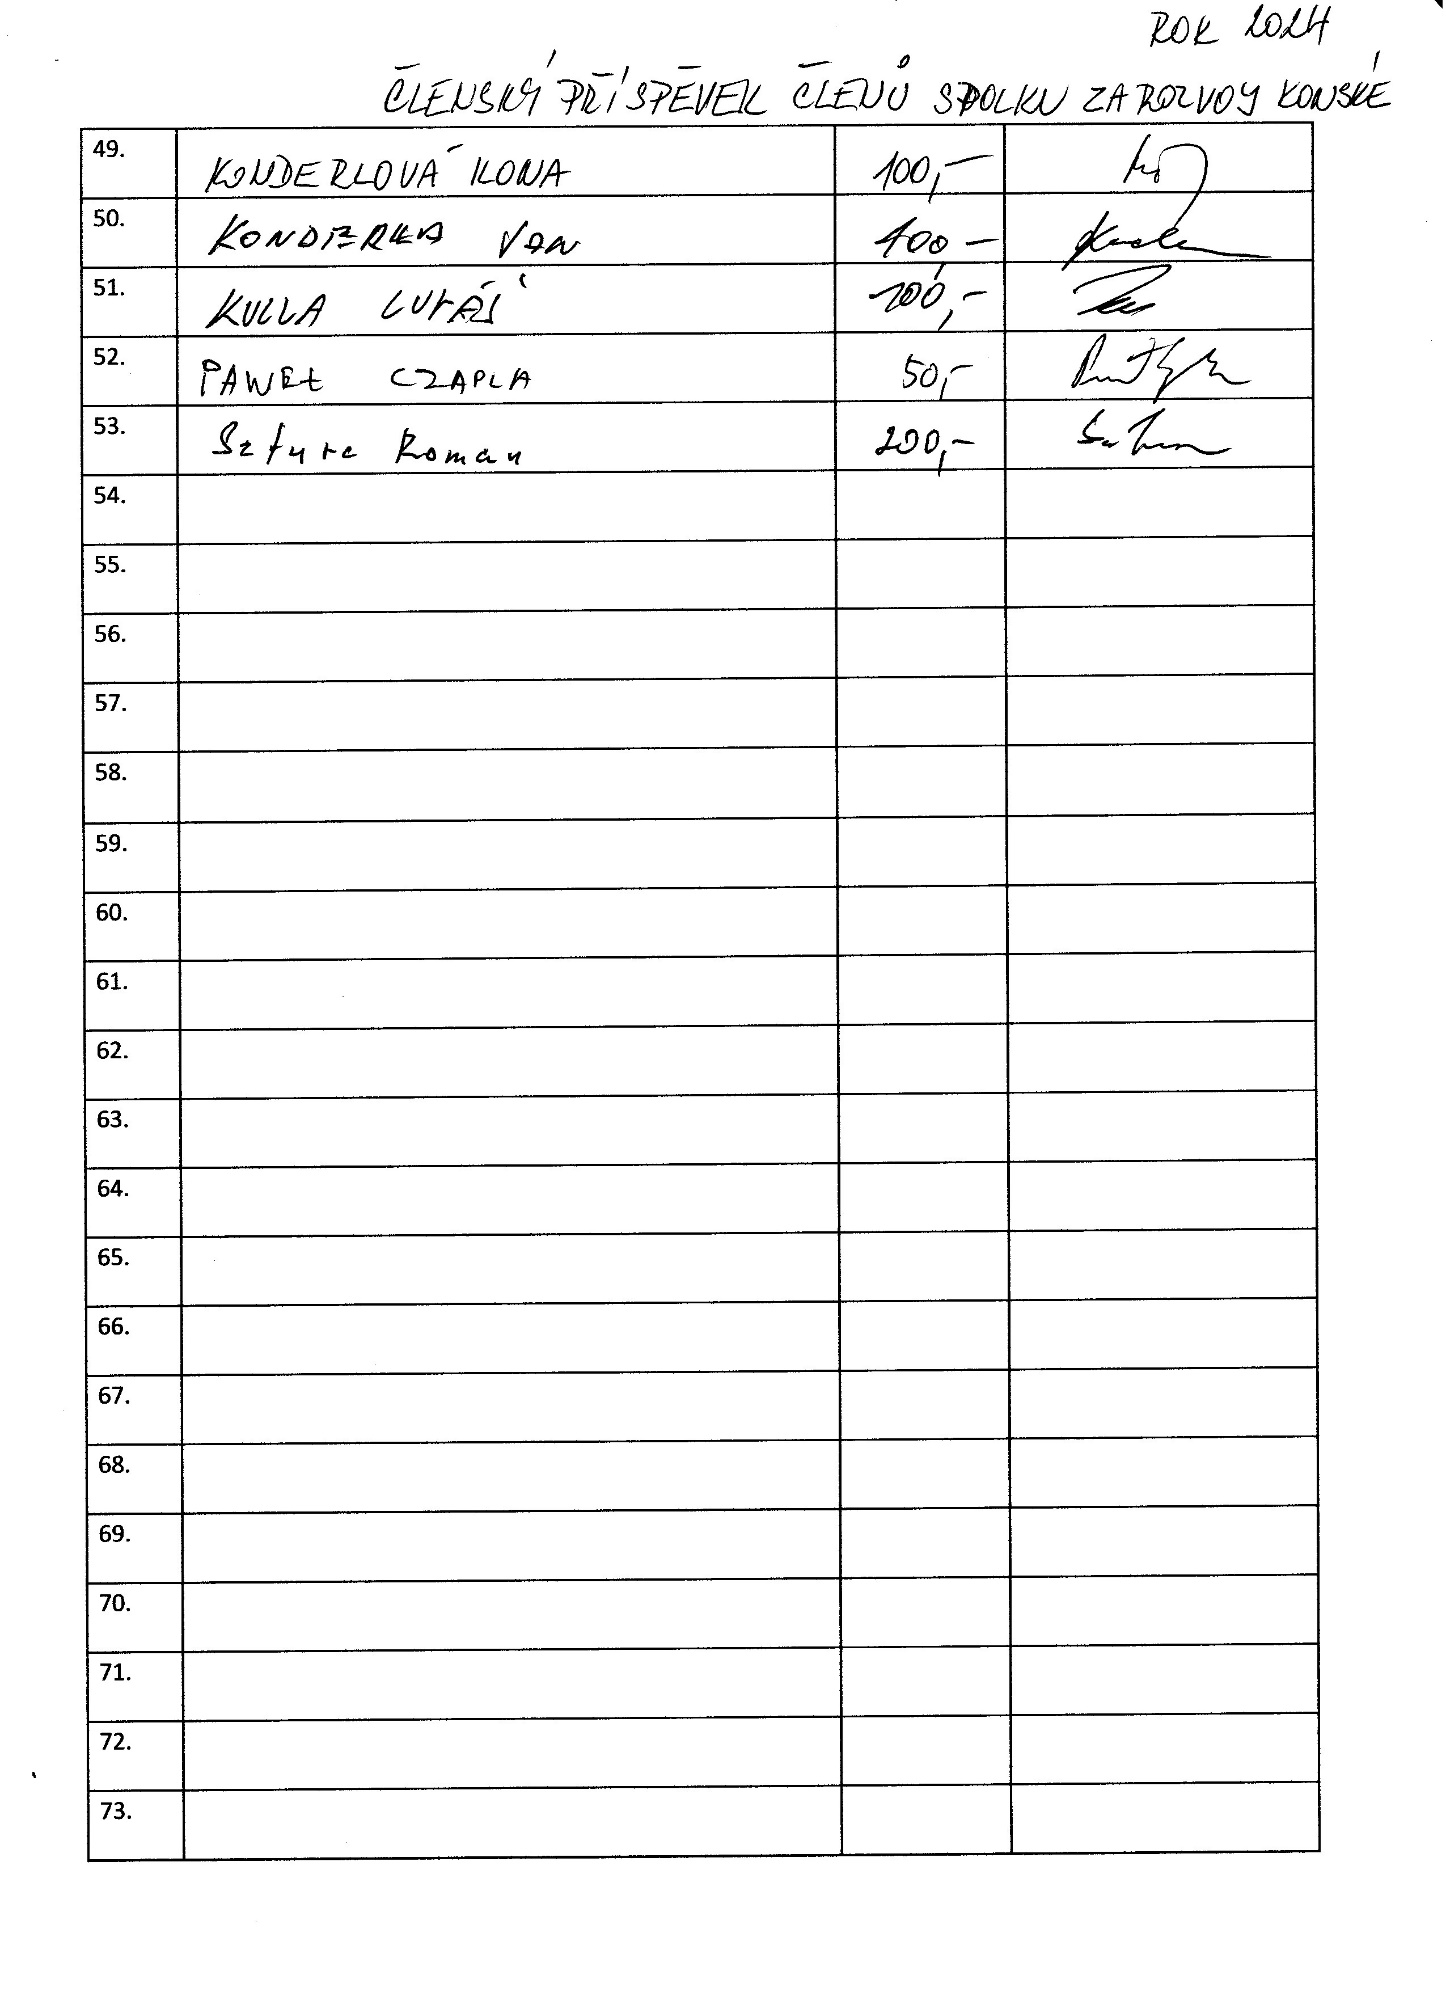 ROK 2024
ČLENSKÝ PŘÍSPĚVEK ČLENŮ SPOLKU ZA ROZVOJ KONSKÉ
49. KONDERLOVÁ ILONA 100,-
50. KONDERLA JAN 100 -
51. KULLA LUKÁŠ 100,-
52. PAWEŁ CZAPLA 50,-
53. Sztura Roman 200,-
54.
55.
56.
57.
58.
59.
60.
61.
62.
63.
64.
65.
66.
67.
68.
69.
70.
71.
72.
73.